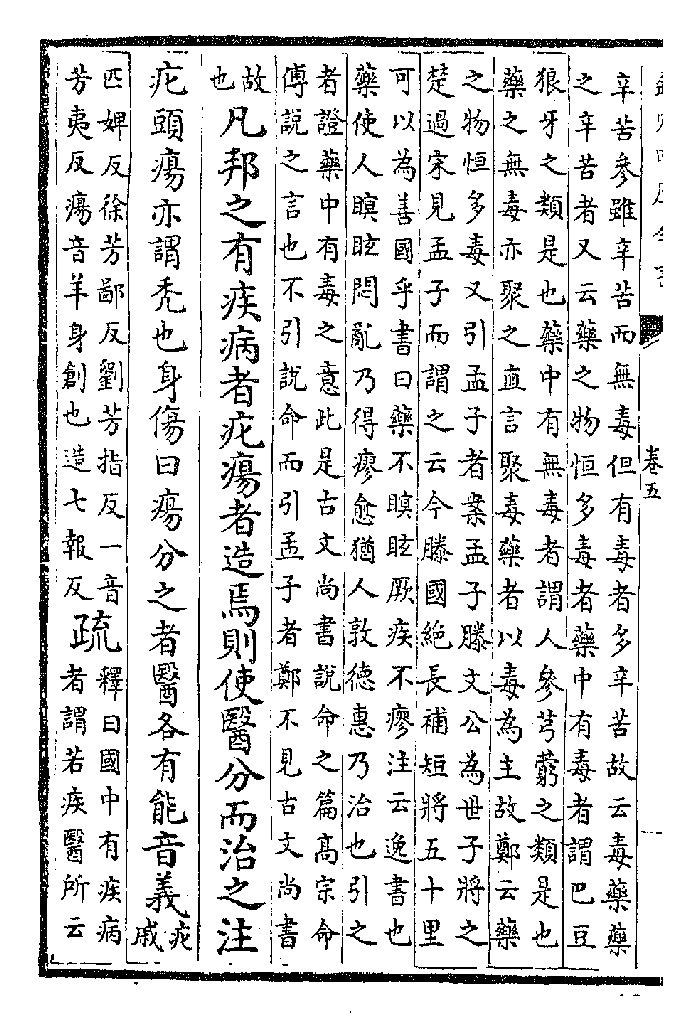 卷五
辛苦參雖辛苦而無毒但有毒者多辛苦故云毒藥藥
之辛苦者又云藥之物恒多毒者藥中有毒者謂巴豆
狼牙之類是也藥中有無毒者謂人參芎藭之類是也
藥之無毒亦聚之直言聚毒藥者以毒為主故鄭云藥
之物恒多毒又引孟子者案孟子滕文公為世子將之
楚過宋見孟子而謂之云今滕國絕長補短將五十里
可以為善國乎書曰藥不瞑眩厥疾不瘳注云逸書也
藥使人瞑眩悶亂乃得瘳愈猶人敦德惠乃治也引之
者證藥中有毒之意此是古文尚書說命之篇髙宗命
傅說之言也不引說命而引孟子者鄭不見古文尚書
故也凡邦之有疾病者疕瘍者造焉則使醫分而治之注
疕頭瘍亦謂禿也身傷曰瘍分之者醫各有能音義疕戚
匹婢反徐芳鄙反劉芳指反一音
芳夷反瘍音羊身創也造七報反
疏釋曰國中有疾病
者謂若疾醫所云